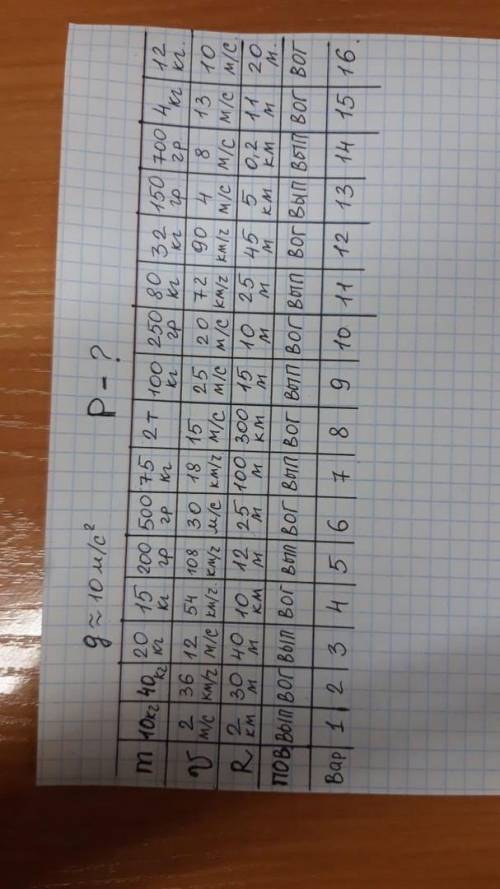 g ≈ 10 м/с² P - ?
m 10кг 40кг 20кг 15кг 200гр 500гр 75кг 2т 100кг 250гр 80кг 32кг 150гр 700гр 4кг 12кг.
V 2м/с 36км/ч 12м/с 54км/ч. 108км/ч 30м/с 18км/ч 15м/с 25м/с 20м/с 72км/ч 90км/ч 4м/с 8м/с 13м/с 10м/с.
R 2км 30м 40м 10км 12м 25м 100м 300км 15м 10м 25м 45м 5км 0,2км 11м 20м.
ПОВ ВЫП ВОГ ВЫП ВОГ ВЫП ВОГ ВЫП ВОГ ВЫП ВОГ ВЫП ВОГ ВЫП ВЫП ВОГ ВОГ
Вар 1 2 3 4 5 6 7 8 9 10 11 12 13 14 15 16.